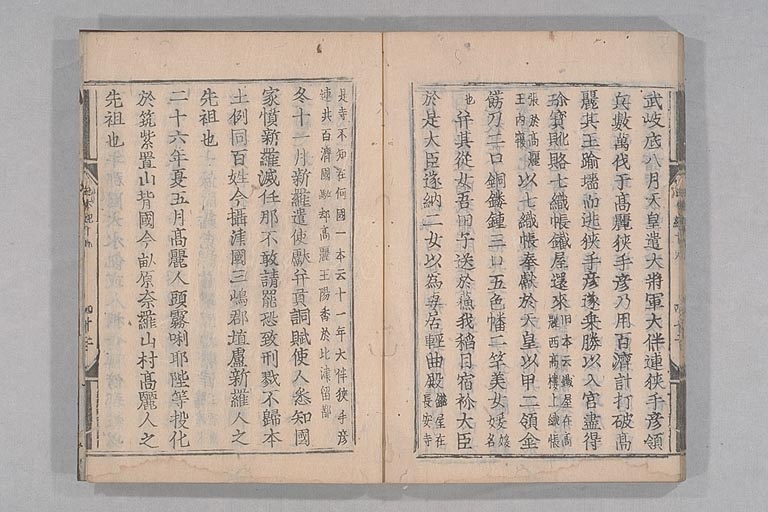 武岐底八月天皇遣大將軍大伴連狹手彥領
兵數萬伐于髙麗狹手彥乃用百濟計打破髙
麗其王踰墻而逃狹手彥遂乗勝以入宮盡得
珍寶貨賂七織帳鐵屋還來舊本云鐵屋在髙麗西髙樓上織帳
張於髙麗王内寢以七織帳奉獻於天皇以甲二領金
餝刀二口銅鏤鍾三口五色幡二竿美女媛媛名
也幷其從女吾田子送於蘇我稻目宿祢大臣
於是大臣遂納二女以爲妻居輕曲殿鐵屋在長安寺
是寺不知在何國一本云十一年大伴狹手彥
連共百濟國駈却髙麗王陽香於比津留都
冬十一月新羅遣使獻幷貢調賦使人悉知國
家憤新羅滅任那不敢請罷恐致刑戮不歸本
土例同百姓今攝津國三嶋郡埴廬新羅人之
先祖也
二十六年夏五月髙麗人頭霧唎耶陛等投化
於筑紫置山背國今畝原奈羅山村髙麗人之
先祖也